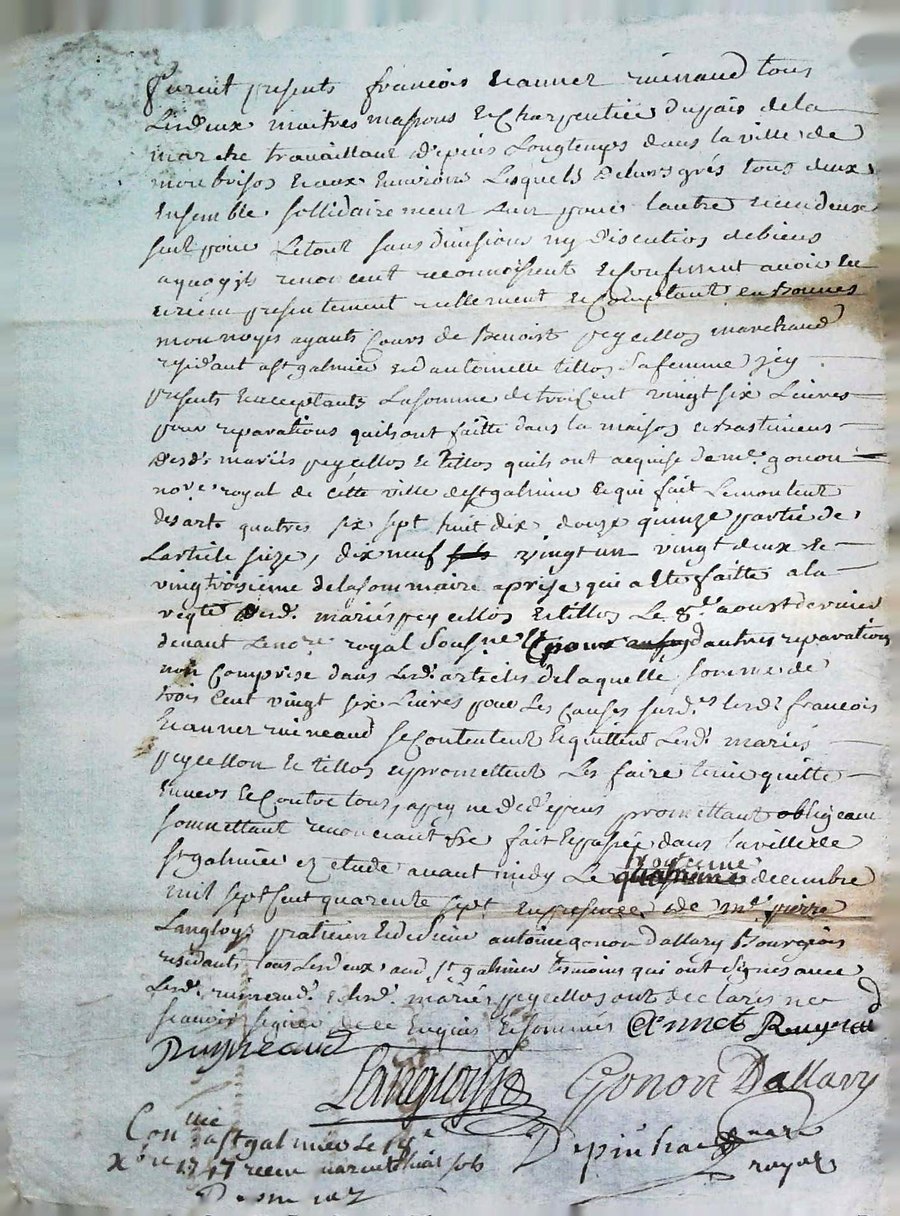 furent presents francois et annet rieneaud tous
Lesdeux maitres massons et Charpentier du pais de la
marche travaillant depuis Longtemps dans la ville de
montbrison et aux Environs Lesquels de leurs grés tous deux
Ensemble sollidairement Lun pour lautre un deux
seul pour Letout sans division ny discution de biens
a quoy ils renoncent reconnoissent et confessent avoir eu
et recu presentement reellement et Comptant en Bonnes
monnoyes ayants Cours de Benoist peycellon marchand
residant a st galmier et d'antoinette tillon sa femme jcy
presents et acceptants La somme de troicent vingt six Livres
pour reparations quils ont faitte dans la maison et Bastiments
desd. mariés peycellon et tillon quils ont acquise de me. gonon
nore. royal de cette ville de st galmier et qui fait Le montent
des arts quatres six sept huit dix douze quinze partie de
Larticle seize, dix neuf vingt un vingt deux et
vingtroisieme de la sommaire aprise qui a Ete faitte a la
reqte. desd. mariés peycellon et tillon Le 8e. aoust dernier
devant Le nore. royal sousne. Et pour d'autres reparations
non Comprise dans Lesd. articles de laquelle somme de
trois Cent vingt six Livres pour Les Causes susd.s lesd. francois
Et annet rieneaud se Contentent Et quittent Lesd. mariés
peycellon et tillon et promettent Les faire tenir quitte
Envers et Contre tous, a peyne de depens promettant obligeant
soumettant renonciant &e fait Et passé dans la ville de
st galmier ez etude avant midy Le troizieme decembre
mil sept Cent quarente sept En presence de me. pierre
Langloys praticien et de sieur antoine gonon dallary Bourgeois
residants tous Lesdeux aud. st galmier temoins qui ont signés avec
Lesd. rieneaud. et lesd. mariés peycellon ont declarés ne
scavoir signer de ce Enquis Et sommés Annet Ruyneaud
Ruyneaud
Langloys Gonon Dallary
Conlle a st galmier Le
Xbre 1747 recu
Depinhac nore
royal